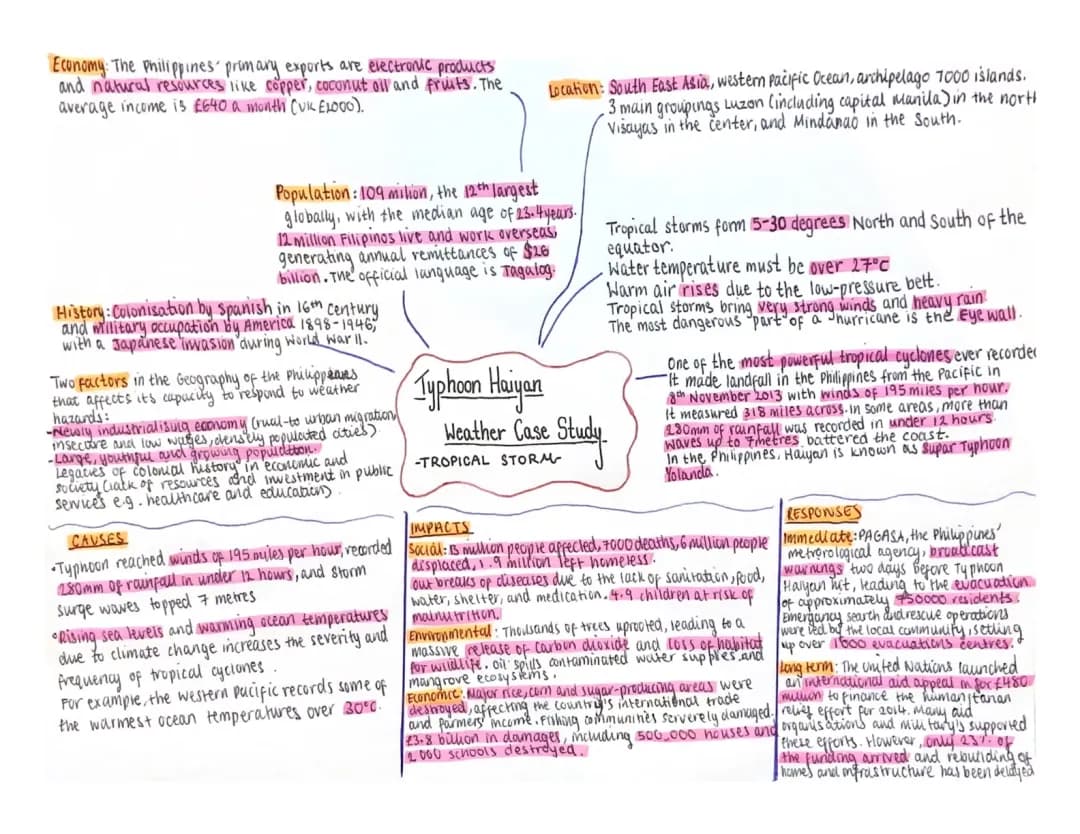 Economy: The Philippines' primary exports are electronic products
and natural resources like copper, coconut oil and fruits. The
average income is £640 a month (UK £1,000).
Location: South East Asia, western Pacific Ocean, archipelago 7000 islands.
3 main groupings Luzon (including capital Manila) in the north
Visayas in the center, and Mindanao in the South.
Population: 109 milion, the 12th largest
globally, with the median age of 23.4 years.
12 million Filipinos live and work overseas,
generating annual remittances of $26
billion. The official language is Tagalog.
Tropical storms form 5-30 degrees North and South of the
equator.
Water temperature must be over 27°c
Warm air rises due to the low-pressure belt.
Tropical storms bring very strong winds and heavy rain
The most dangerous part of a hurricane is the Eye wall.
History: Colonisation by Spanish in 16th century
and military occupation by America 1898-1946,
with a Japanese invasion during World War II.
Two factors in the Geography of the Philippines
that affects its capacity to respond to weather
hazards:
-Newly industrialising economy (rual-to urban migration
insecure and low wages, densely populated cities).
-Large, youthful and growing population.
Legacies of colonial history in economic and
society (lack of resources and investment in public
services e.g. healthcare and education)
Typhoon Haiyan
Weather Case Study
-TROPICAL STORM-
One of the most powerful tropical cyclones ever recorde
It made landfall in the Philippines from the Pacific in
8th November 2013 with winds of 195 miles per hour.
It measured 318 miles across. In some areas, more than
280mm of rainfall was recorded in under 12 hours
waves up to 7 metres battered the coast.
In the Philippines, Haiyan is known as Supar Typhoon
Yolanda.
CAUSES
•Typhoon reached winds of 195 miles per hour, recorded
280mm of rainfall in under 12 hours, and storm
surge waves topped 7 metres
•Rising sea levels and warming ocean temperatures
due to climate change increases the severity and
frequency of tropical cyclones.
For example, the Western Pacific records some of
the warmest ocean temperatures over 30°c.
IMPACTS
Social: 13 million people affected, 7000 deaths, 6 million people
displaced, 1.9 million left homeless.
out breaks of diseases due to the lack of sanitation, food,
water, shelter, and medication. 4.9 children at risk of
malnutrition.
Environmental: Thousands of trees uprooted, leading to a
massive release of carbon dioxide and loss of habitat
for wildlife. oil spills contaminated water supplies and
mangrove ecosystems.
Economic: Major rice, corn and sugar-producing areas were
destroyed, affecting the country's international trade
and farmers' income. Fishing communities serverely damaged.
£3.8 billion in damages, including 500,000 houses and
2000 schools destroyed.
RESPONSES
Immediate: PAGASA, the Philippines'
metrerological agency, broadcast
warnings two days before Typhoon
Haiyan hit, leading to the evacuation
of approximately 750000 residents.
Emergency search and rescue operations
were led by the local community, setting
up over 1600 evacuations centres.
Long term: The United Nations launched
an international aid appeal in for £480
million to finance the humanitarian
relief effort for 2014. Many aid
organisations and military's supported
these efforts. However, only 23% of
the funding arrived and rebuilding of
homes and infrastructure has been delayed